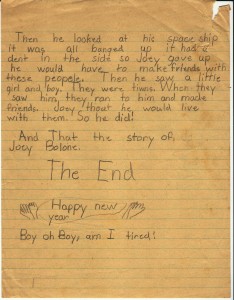 Then he looked at his space ship
it was all banged up it had a
dent in the side so Joey gave up
he would have to make friends with
these peopele. Then he saw a little
girl and boy. They were twins. When they
saw him, they ran to him and made
friends. Joey thout he would live
with them. So he did!
And That the story of,
Joey Bolone.
The End
Happy new
year
Boy oh Boy, am I tired!